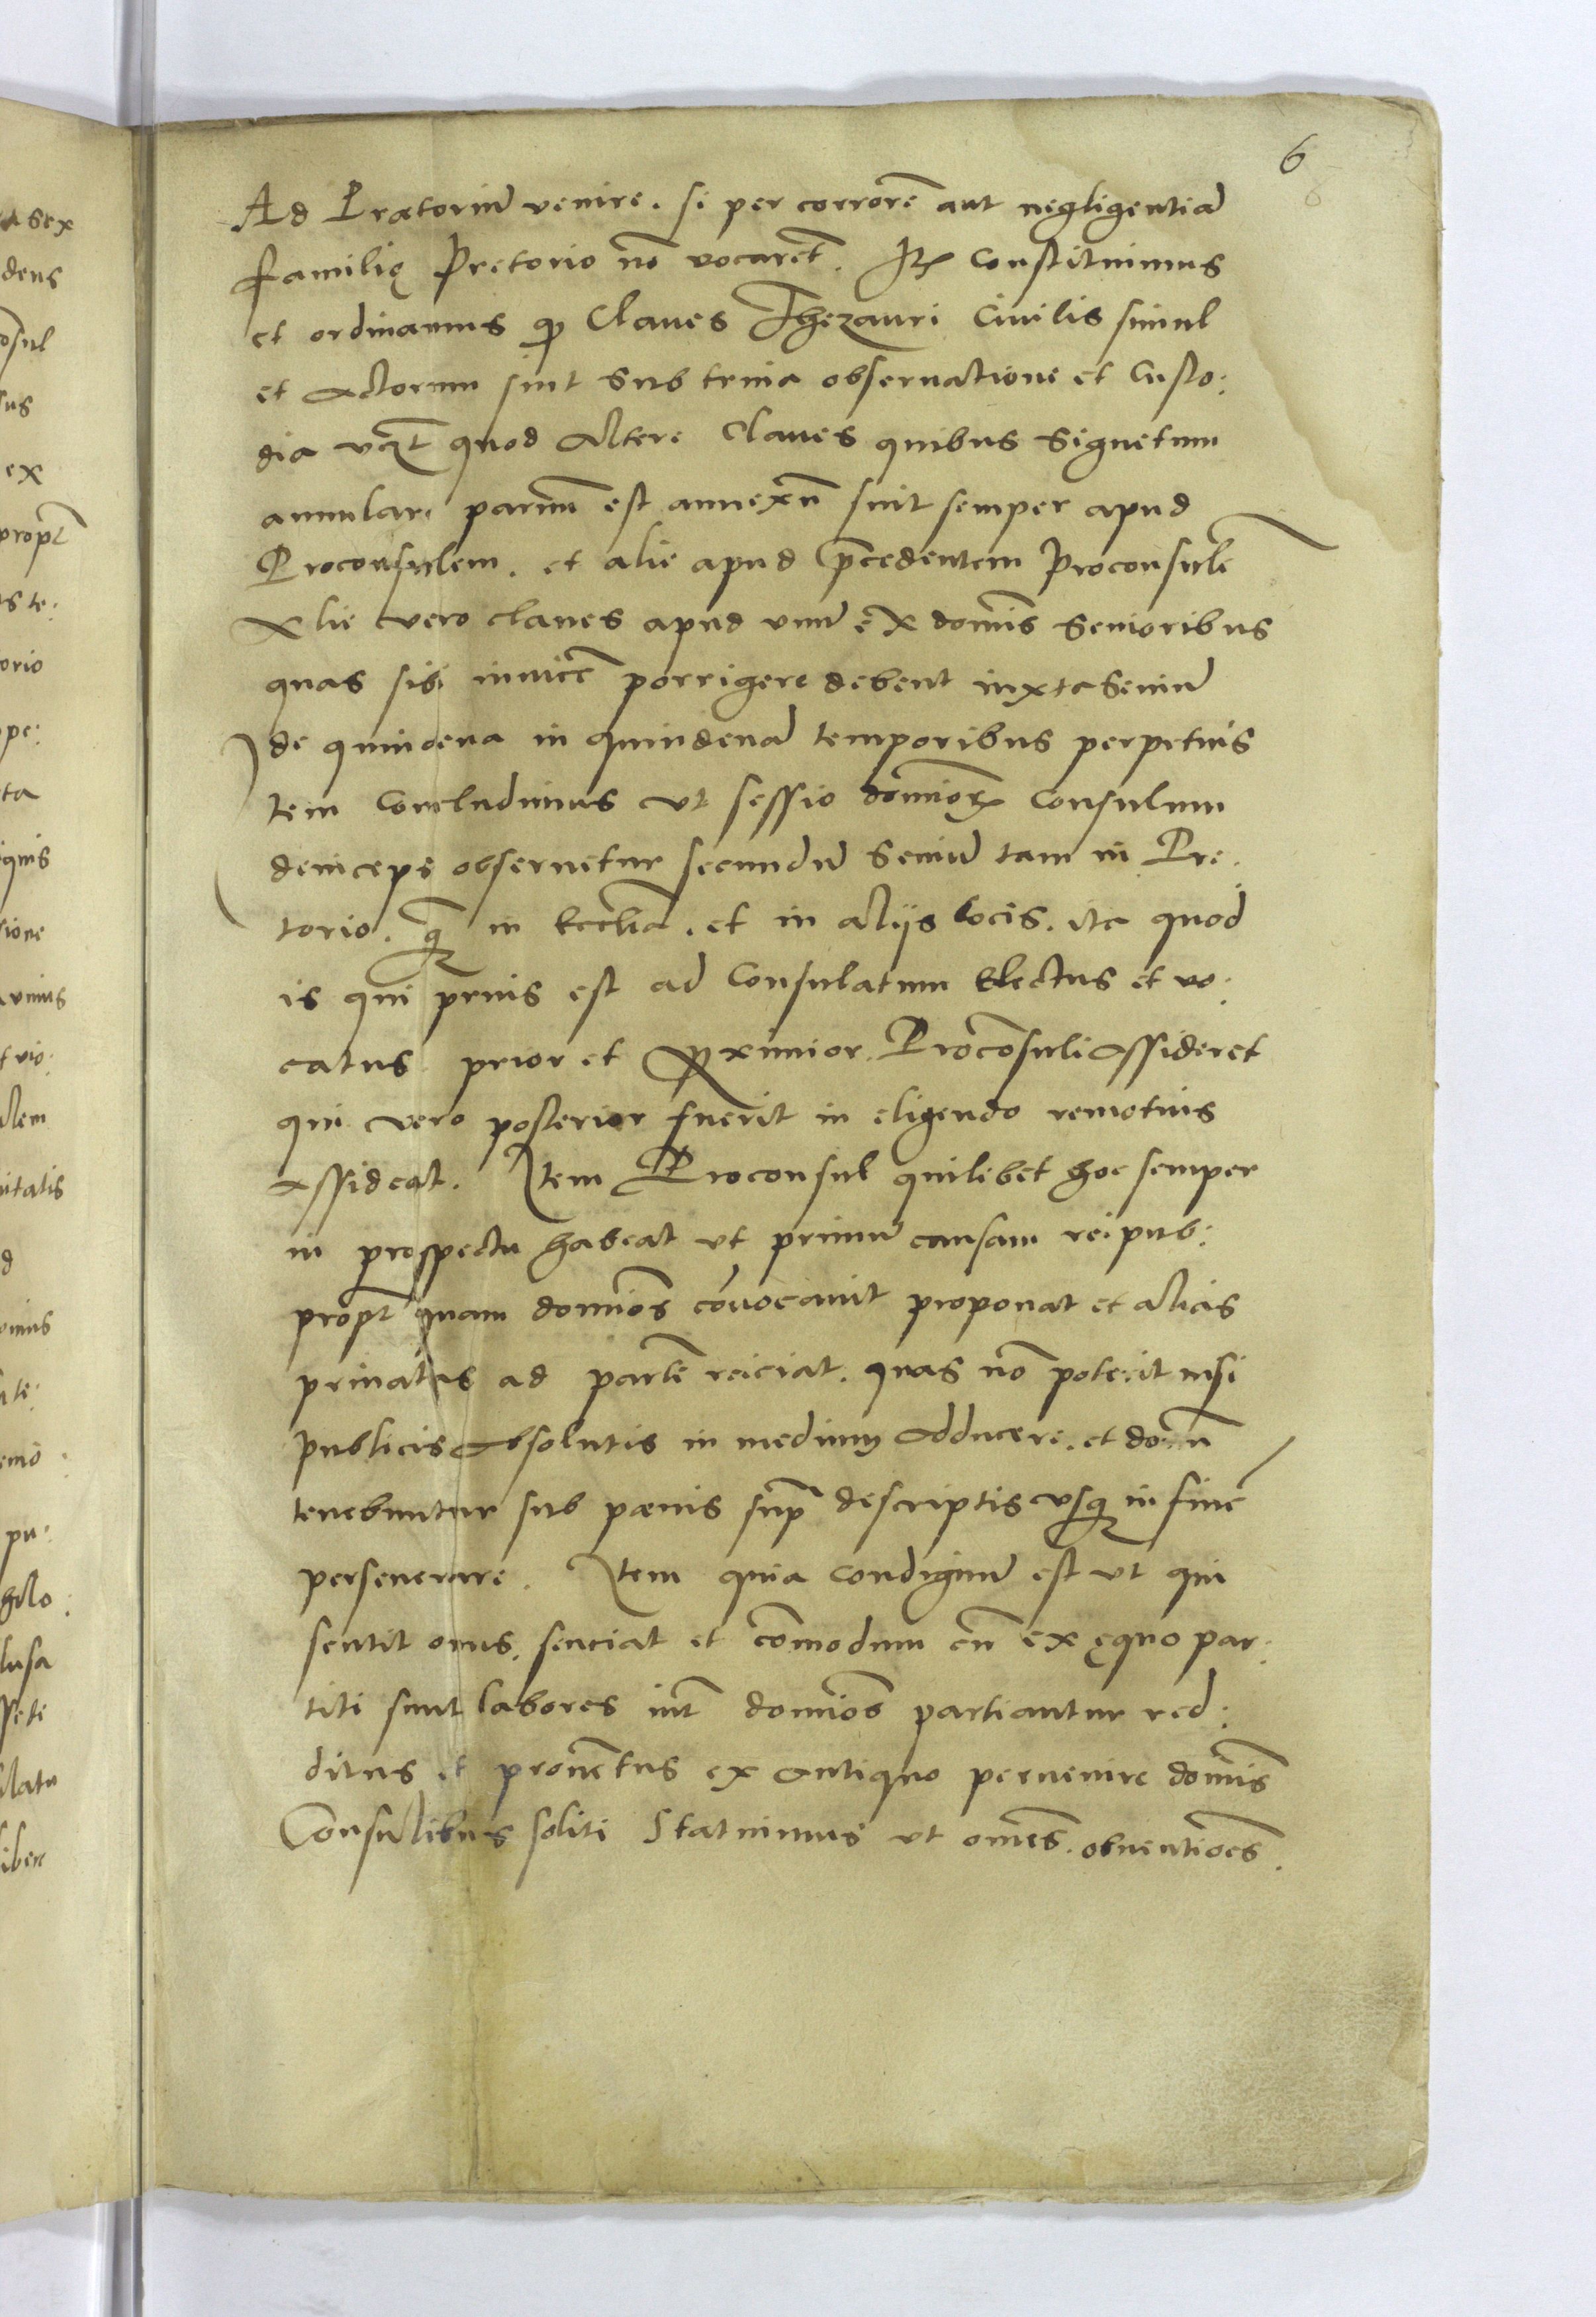 6
Ad Prætoriū venire. si per corrorē aut negligentiā
familię Pretorio nō vocarēt. Itē Constituimus
et ordinamus q̄ Claues Thezauri Ciuilis simul
et Actorum sint Sub trina obseruatione et Custo:
dia vꝫt quod Altere Claues quibus Signetum
annulare paruū est annexū sint semper apud
Proconsulem. et alie apud p̄cedentem Proconsulē
Alie vero claues apud vnū ex domīs Senioribus
quas sibi inuicē porrigere debent iuxta Seniū
de quindena in quindenā temporibus perpetuis
Item Concludimus vt sessio domīorꝝ Consulum
deinceps obseruetur secundū Seniū tam in Pre:
torio. q̄ in Ecclīa. et in Alijs locis. ita quod
is qui prius est ad Consulatum Electus et vo:
catus prior et Proximior Procōsuli Assideret
qui vero posterior fuerit in eligendo remotius
Assideat. Item Proconsul quilibet hoc semper
in prospectu habeat vt primū causam reipub:
propt̄ quam domīos cōuocauit proponat et Alias
priuatas ad partē reiciat. quas nō poterit nisi
publicis Absolutis in medium Adducere. et domī
tenebuntur sub pænis sup̄ descriptis vsq̄ in finē
perseuerare. Item quia condignū est vt qui
sentit onus. senciat et cōmodum cū ex ęquo par:
titi sunt labores int̄ domīos partiantur red:
ditus et prouētus ex Antiquo peruenire domīs
Consulibus soliti Statuimus vt omēs. obuentiōes.